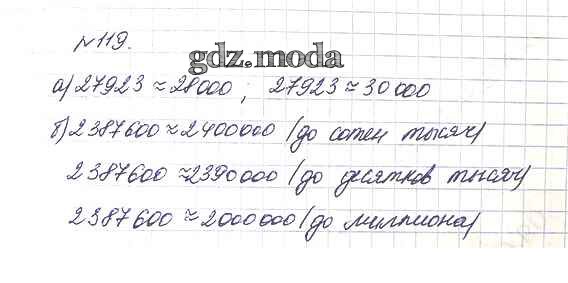 №119.
gdz.moda
а) 27923 ≈ 28000 ; 27923 ≈ 30000
б) 2387600 ≈ 2400000 (до сотен тысяч)
2387600 ≈ 2390000 (до десятков тысяч)
2387600 ≈ 2000000 (до миллиона)